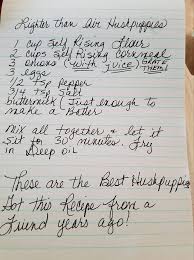 Lighter Than Air Huskpuppies
1 cup Self Rising Flour
2 cups Self Rising Cornmeal
3 onions (with JUICE) GRATE THEM!
3 eggs
1/2 tsp Pepper
3/4 tsp Salt
buttermilk (Just enough to
make a Batter
Mix all together & let it
Sit for 30 minutes. Fry
in Deep oil
These are the Best Huskpuppies
Got this Recipe from a
Friend years ago!